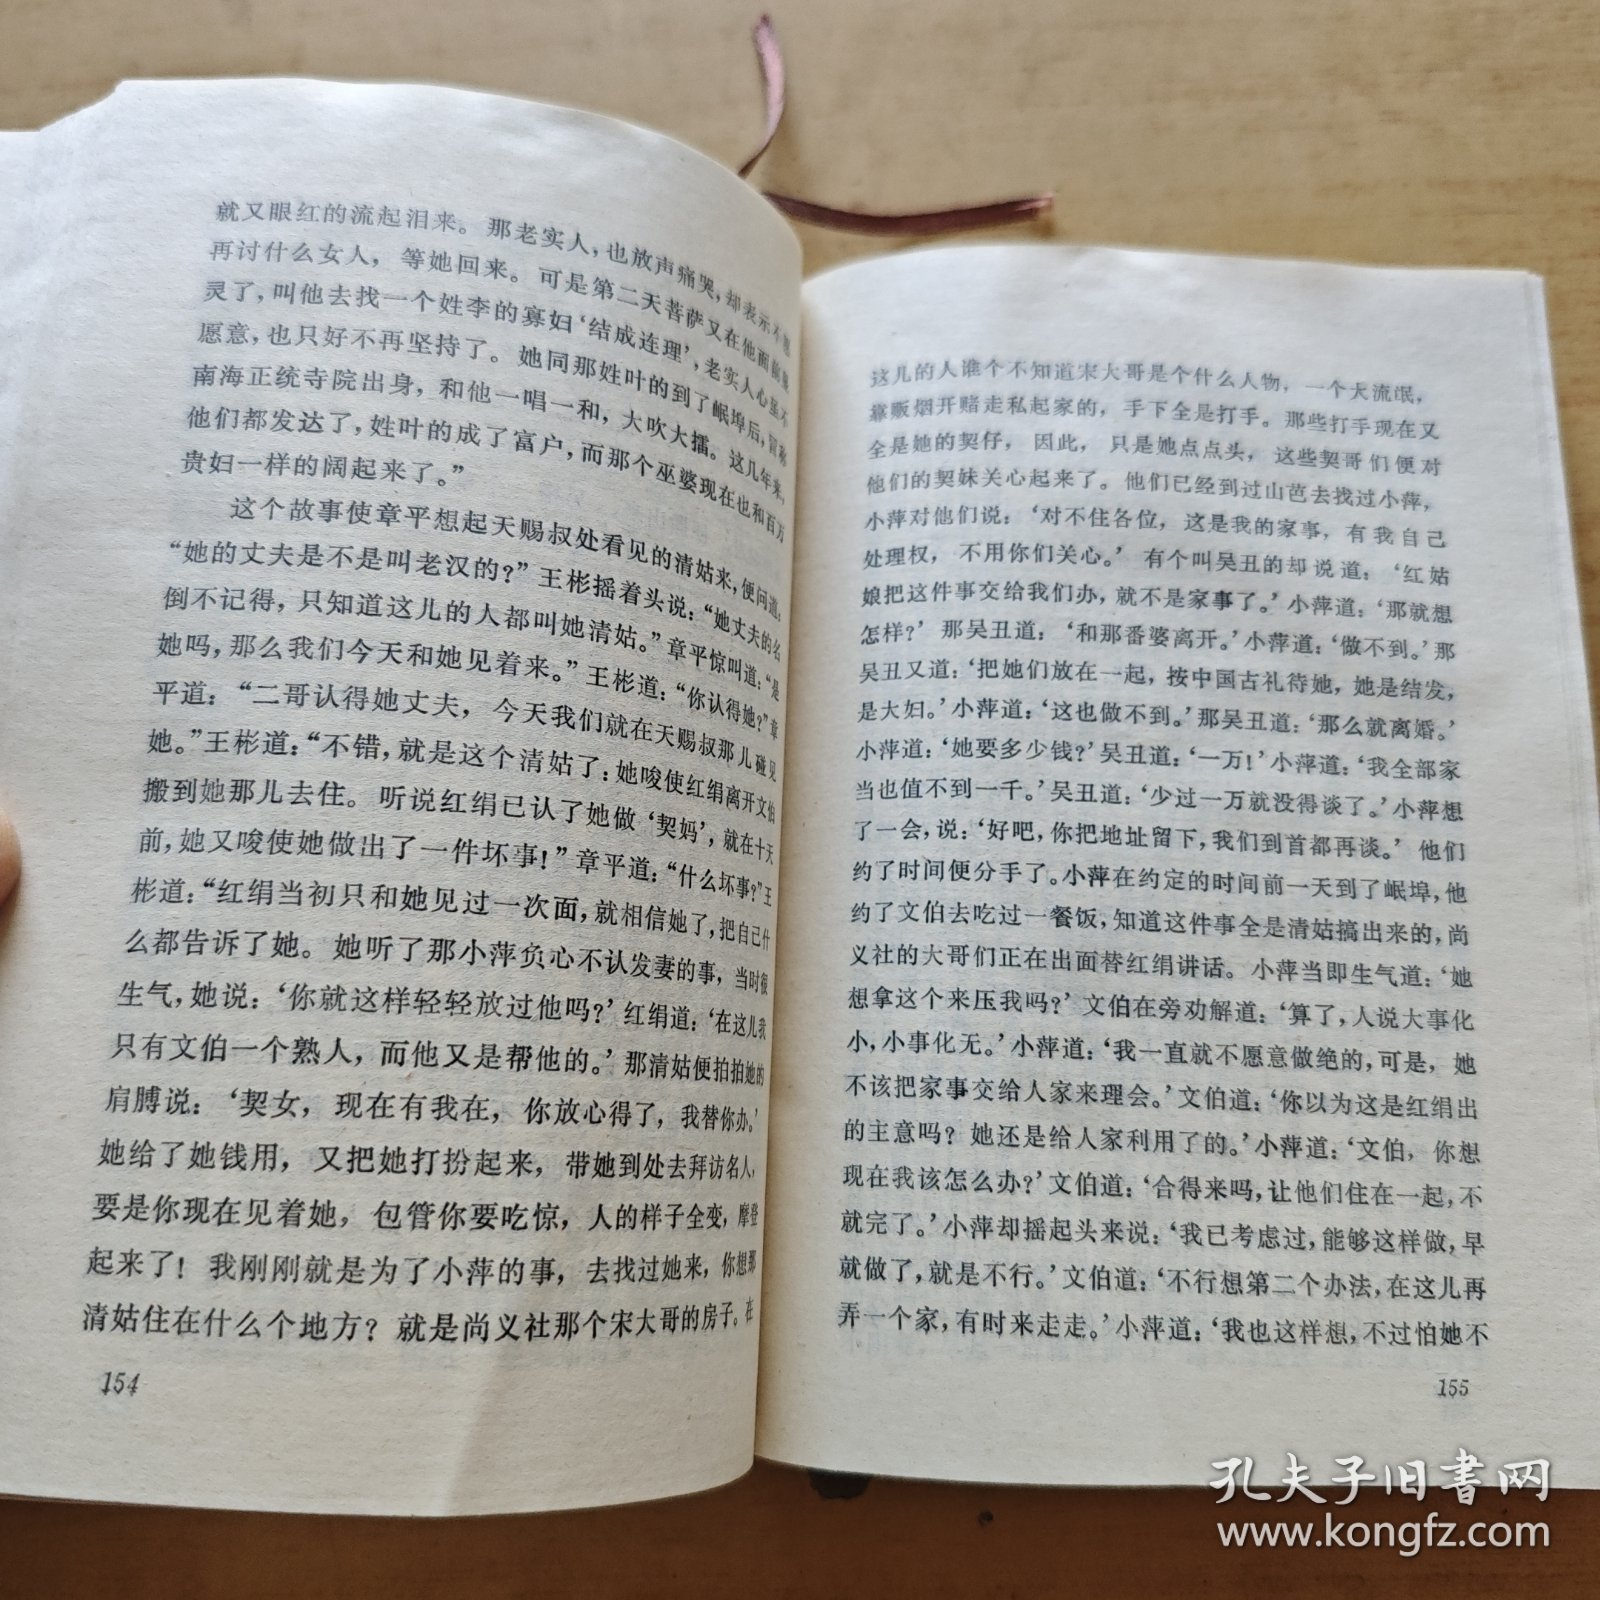 就又眼红的流起泪来。那老实人，也放声痛哭，却表示不愿
再讨什么女人，等她回来。可是第二天菩萨又在他面前显
灵了，叫他去找一个姓李的寡妇‘结成连理’，老实人心里不
愿意，也只好不再坚持了。她同那姓叶的到了岷埠后，冒称
南海正统寺院出身，和他一唱一和，大吹大擂。这几年来，
他们都发达了，姓叶的成了富户，而那个巫婆现在也和百万
贵妇一样的阔起来了。”
这个故事使章平想起天赐叔处看见的清姑来，便问道：
“她的丈夫是不是叫老汉的？”王彬摇着头说：“她丈夫的名
倒不记得，只知道这儿的人都叫她清姑。”章平惊叫道：“是
她吗，那么我们今天和她见着来。”王彬道：“你认得她？”章
平道：“二哥认得她丈夫，今天我们就在天赐叔那儿碰见
她。”王彬道：“不错，就是这个清姑了；她唆使红绢离开文伯
搬到她那儿去住。听说红绢已认了她做‘契妈’，就在十天
前，她又唆使她做出了一件坏事！”章平道：“什么坏事？”王
彬道：“红绢当初只和她见过一次面，就相信她了，把自己什
么都告诉了她。她听了那小萍负心不认发妻的事，当时很
生气，她说：‘你就这样轻轻放过他吗？’红绢道：‘在这儿我
只有文伯一个熟人，而他又是帮他的。’那清姑便拍拍她的
肩膊说：‘契女，现在有我在，你放心得了，我替你办。’
她给了她钱用，又把她打扮起来，带她到处去拜访名人，
要是你现在见着她，包管你要吃惊，人的样子全变，摩登
起来了！我刚刚就是为了小萍的事，去找过她来，你想那
清姑住在什么个地方？就是尚义社那个宋大哥的房子。在
154
这儿的人谁个不知道宋大哥是个什么人物，一个大流氓，
靠贩烟开赌走私起家的，手下全是打手。那些打手现在又
全是她的契仔，因此，只是她点点头，这些契哥们便对
他们的契妹关心起来了。他们已经到过山芭去找过小萍，
小萍对他们说：‘对不住各位，这是我的家事，有我自己
处理权，不用你们关心。’有个叫吴丑的却说道：‘红姑
娘把这件事交给我们办，就不是家事了。’小萍道：‘那就想
怎样？’那吴丑道：‘和那番婆离开。’小萍道：‘做不到。’那
吴丑又道：‘把她们放在一起，按中国古礼待她，她是结发，
是大妇。’小萍道：‘这也做不到。’那吴丑道：‘那么就离婚。’
小萍道：‘她要多少钱？’吴丑道：‘一万！’小萍道：‘我全部家
当也值不到一千。’吴丑道：‘少过一万就没得谈了。’小萍想
了一会，说：‘好吧，你把地址留下，我们到首都再谈。’他们
约了时间便分手了。小萍在约定的时间前一天到了岷埠，他
约了文伯去吃过一餐饭，知道这件事全是清姑搞出来的，尚
义社的大哥们正在出面替红绢讲话。小萍当即生气道：‘她
想拿这个来压我吗？’文伯在旁劝解道：‘算了，人说大事化
小，小事化无。’小萍道：‘我一直就不愿意做绝的，可是，她
不该把家事交给人家来理会。’文伯道：‘你以为这是红绢出
的主意吗？她还是给人家利用了的。’小萍道：‘文伯，你想
现在我该怎么办？’文伯道：‘合得来吗，让他们住在一起，不
就完了。’小萍却摇起头来说：‘我已考虑过，能够这样做，早
就做了，就是不行。’文伯道：‘不行想第二个办法，在这儿再
弄一个家，有时来走走。’小萍道：‘我也这样想，不过怕她不
155
孔夫子旧书网
www.kongfz.com